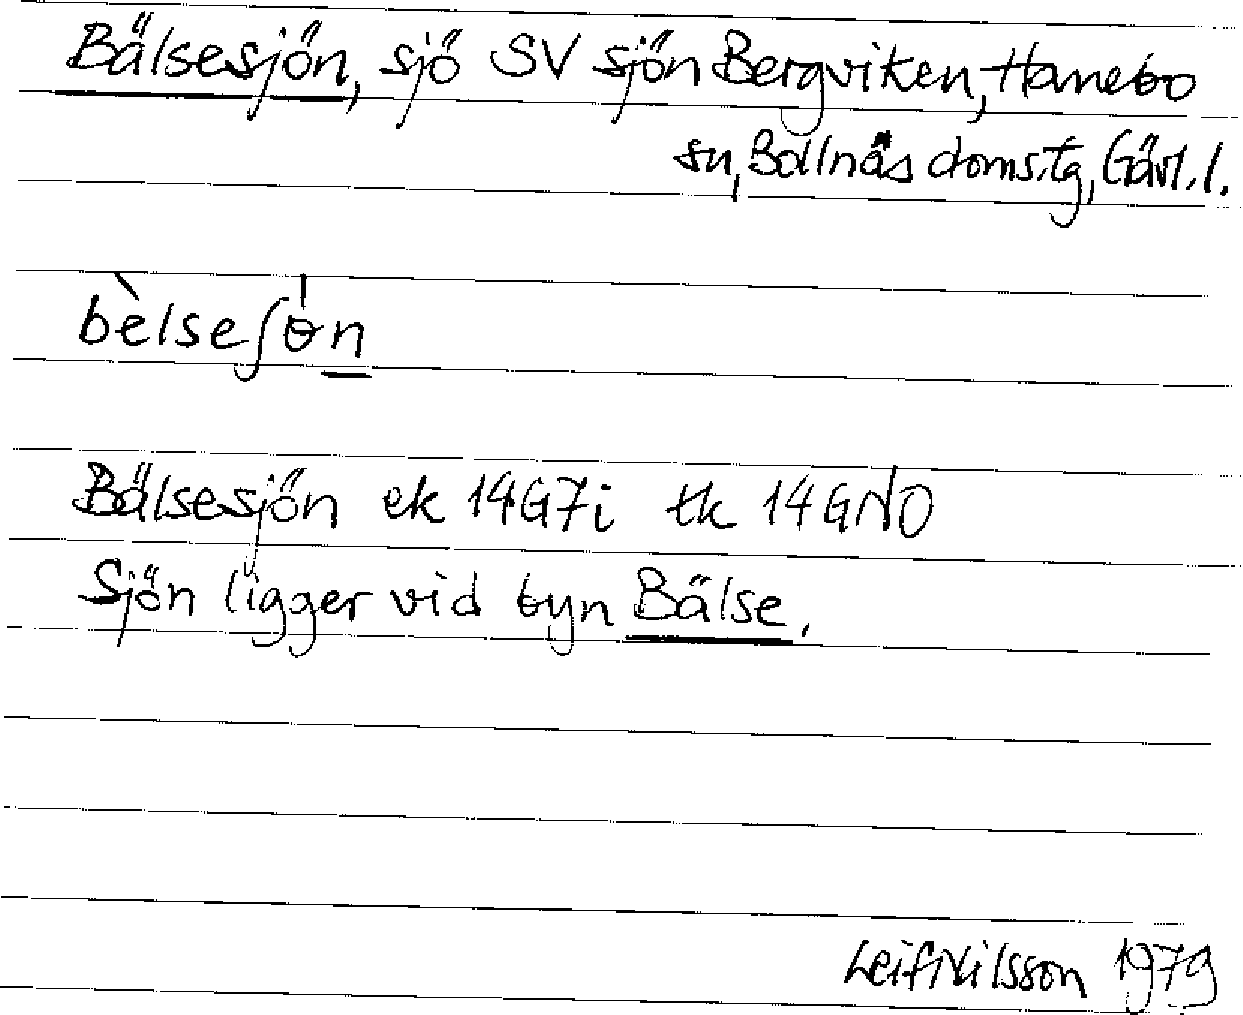 Bälsesjön, sjö SV sjön Bergviken, Hanebo
sn, Bollnäs doms.tg, Gävl. l.
bèlseʃɵ́n
Bälsesjön ek 14G7i tk 14GNO
Sjön ligger vid byn Bälse.
Leif Nilsson 1979